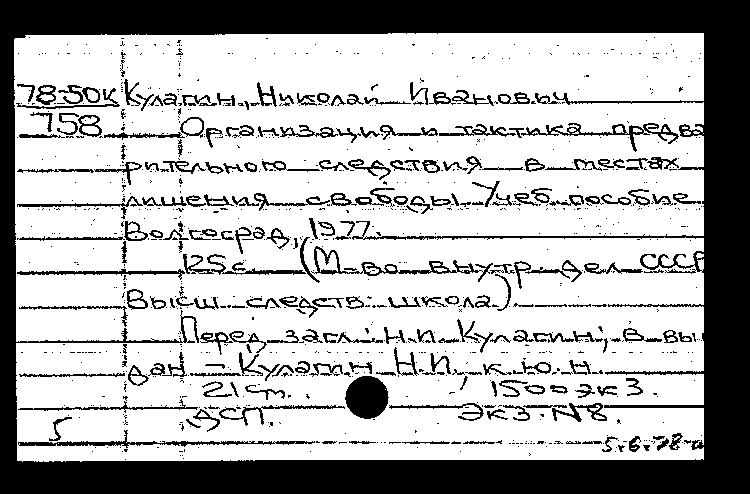 78-50к Кулагин, Николай Иванович
758 Организация и тактика предва
рительного следствия в местах
лишения свободы. Учеб. пособие
Волгоград, 1977.
125 с. (М-во внутр. дел СССР
Высш. следств. школа).
Перед загл.: Н.И. Кулагин; в вы
дан – Кулагин Н.И. к.ю.н.
21 см. 1500 экз.
ДСП. Экз. N8.
5
5.6.78